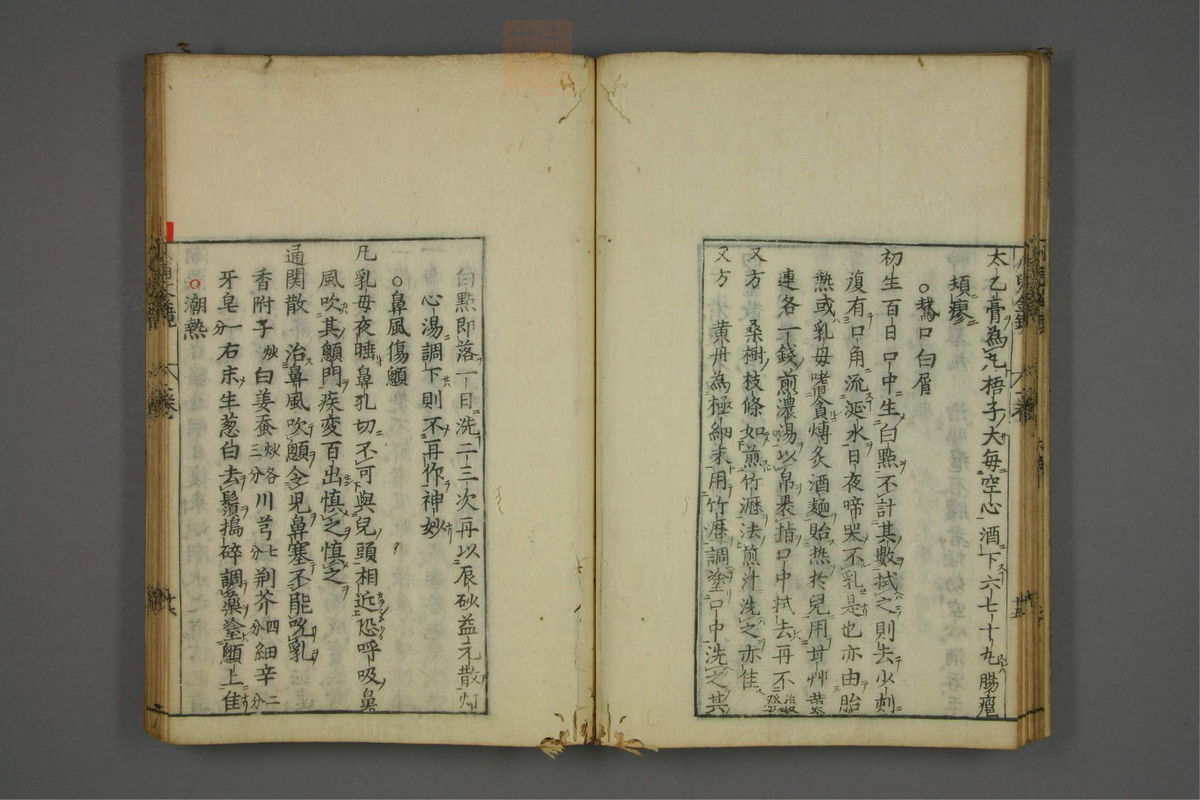 太乙膏為丸梧子大每空心酒下六七十丸腸癰
頓瘳
○鵞口白屑
初生百日口中生白點不計其數拭之則去少刺
復有口角流涎水日夜啼哭不乳是也亦由胎
熱或乳母嗜貪煿炙酒麺貽热於兒用甘艸黄
連各一錢煎濃湯以帛褁指口中拭去再不
又方 桑樹枝條如煎竹瀝法煎汁洗之亦佳
又方 黄丹為極細末用竹瀝調塗口中洗之其
白點即落一日洗二三次再以辰砂益元散灯
心湯調下則不再作神妙
○鼻風傷顖
凡乳母夜睡鼻孔切不可與兒頭相近恐呼吸鼻
風吹其顖門疾変百出慎之慎之
通関散 治鼻風吹顖令児鼻塞不能吮乳
香附子炒白姜蚕炒各三分川芎七分荆芥四分細辛二分
牙皂一分右末生葱白去鬚搗碎調藥塗顖上佳
○潮熱